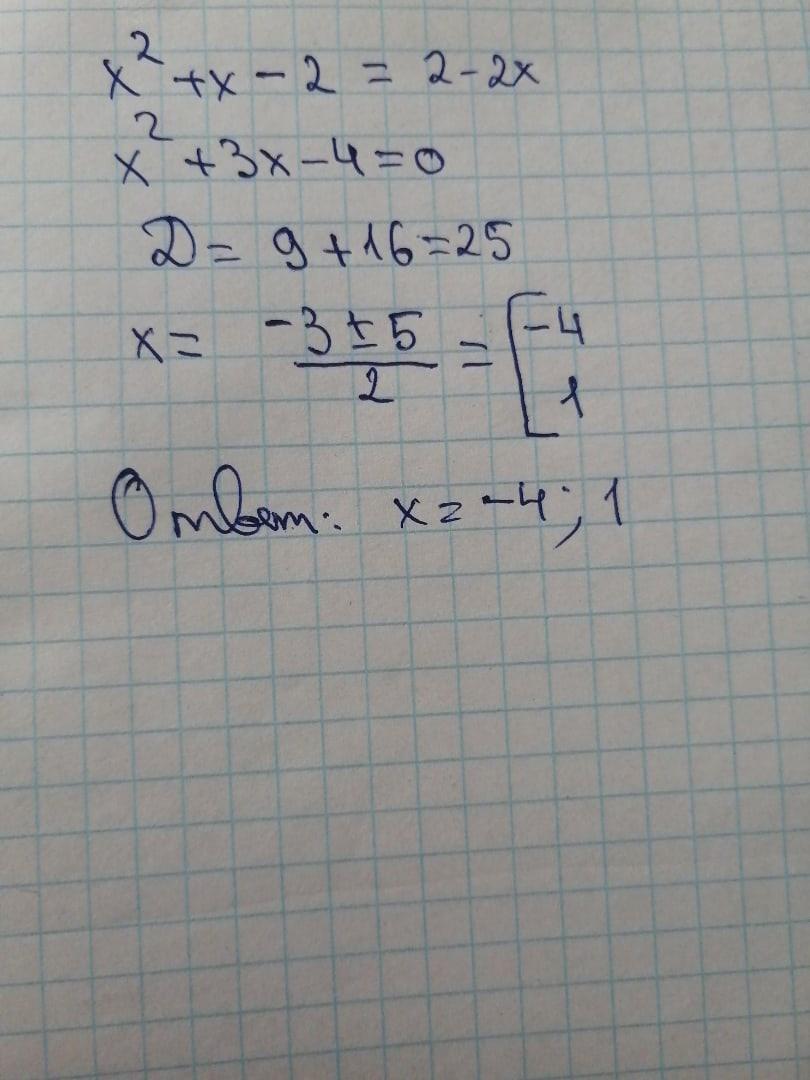 x² + x - 2 = 2 - 2x
x² + 3x - 4 = 0
D = 9 + 16 = 25
x = (-3 ± 5)/2 = [-4
1
Ответ: x = -4; 1